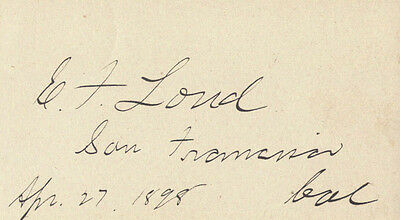 E. F. Loud
San Francisco
Apr. 27. 1898 Cal